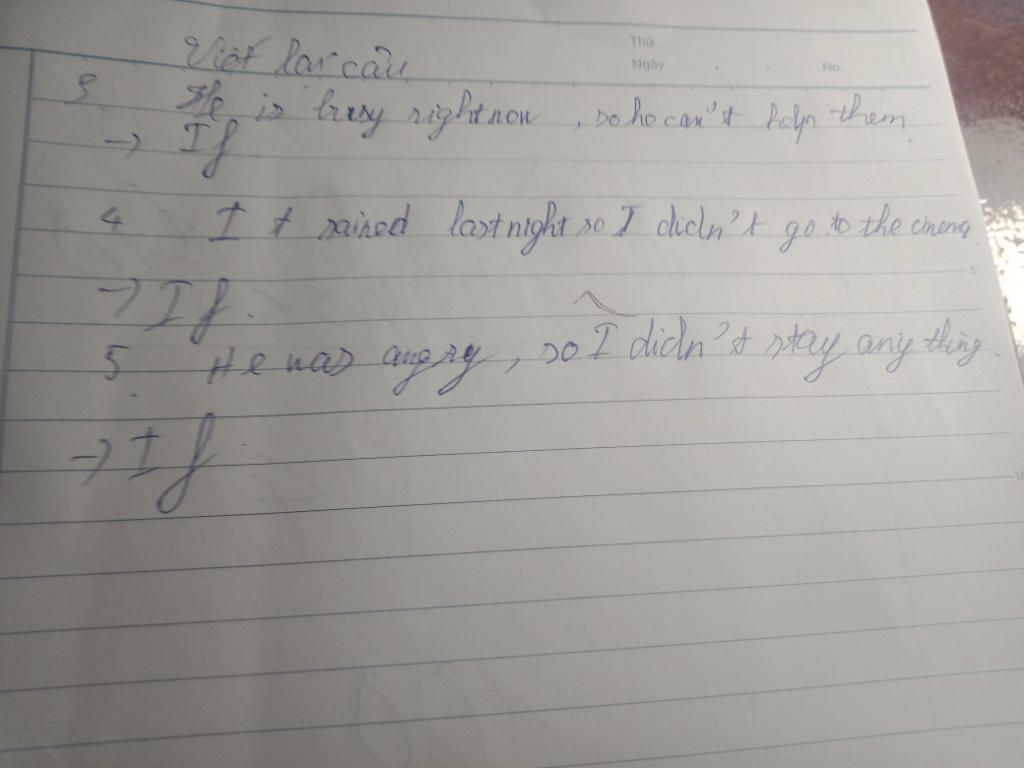 Thứ
Ngày No.
Viết lại câu
3 He is busy right now, so he can't help them.
→ If
4 It rained last night so I didn't go to the cinema.
→ If.
5. He was angry, so I didn't stay any thing.
→ If.